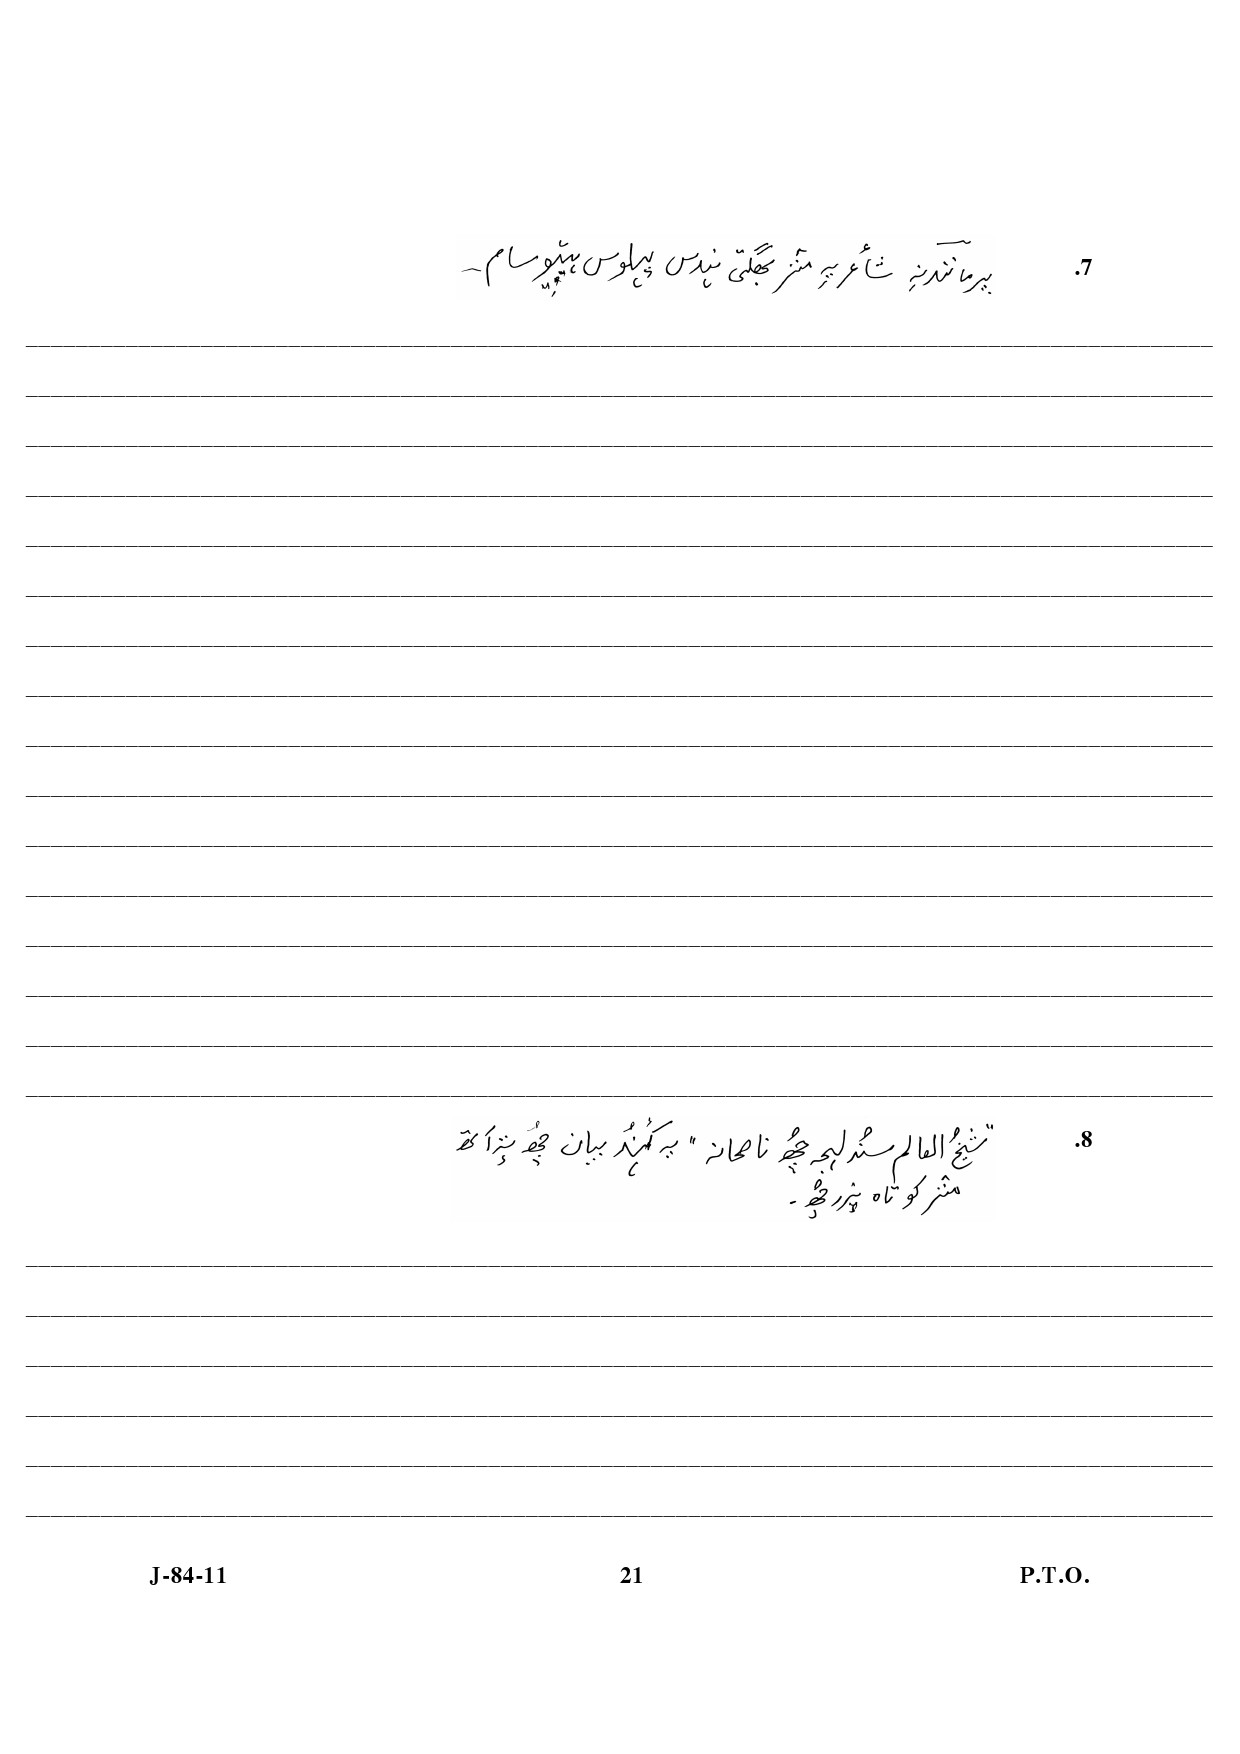 7. پرمانندنہِ شاعرِیہِ منٛز بھگتی ہٕندِس پہلوس ہیٚیِو سام۔
8. "شیخُ العالم سُند لہجہِ چھُ ناصحانہ" یہِ کٔمہُنٛد بیان چھُ تہٕ اَتھ
منٛز کوتاہ پزر چھُ۔
J-84-11 21 P.T.O.